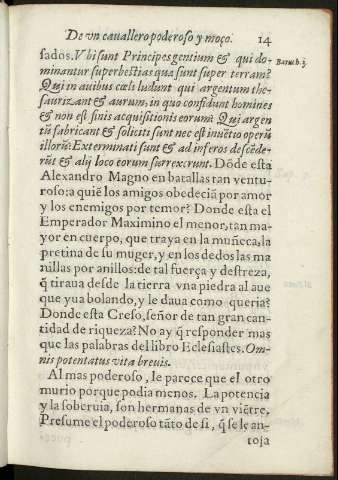 De vn cauallero poderoso y moço. 14
sados. Vbi sunt Principes gentium & qui do-
Baruch. 3.
minantur super bestias quæ sunt super terram?
Qui in auibus cœli ludunt qui argentum the-
saurizant & aurum, in quo confidunt homines
& non est finis acquisitionis eorum: Qui argen
tũ fabricant & soliciti sunt nec est inuẽtio operũ
illorũ: Exterminati sunt & ad inferos descẽde-
rũt & alij loco eorum surrexerunt. Dõde esta
Alexandro Magno en batallas tan ventu-
roso: a quiẽ los amigos obedecian por amor
y los enemigos por temor? Donde esta el
Emperador Maximino el menor, tan ma-
yor en cuerpo, que traya en la muñeca, la
pretina de su muger, y en los dedos las ma
nillas por anillos: de tal fuerça y destreza,
q̃ tiraua desde la tierra vna piedra al aue
que yua bolando, y le daua como queria?
Donde esta Creso, señor de tan gran can-
tidad de riqueza? No ay q̃ responder mas
que las palabras del libro Eclesiastes. Om-
nis potentatus vita breuis.
Al mas poderoso, le parece que el otro
murio porque podia menos. La potencia
y la soberuia, son hermanas de vn viẽtre.
Presume el poderoso tãto de si, q̃ se le an-
toja